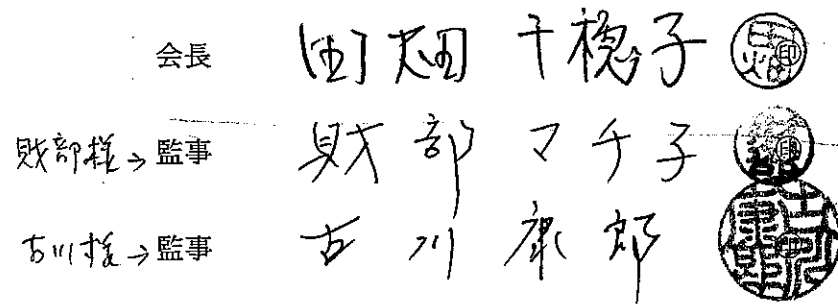 会長 田畑 千穂子 印
財部様→監事 財部 マチ子 印
古川様→監事 古川 康郎 印